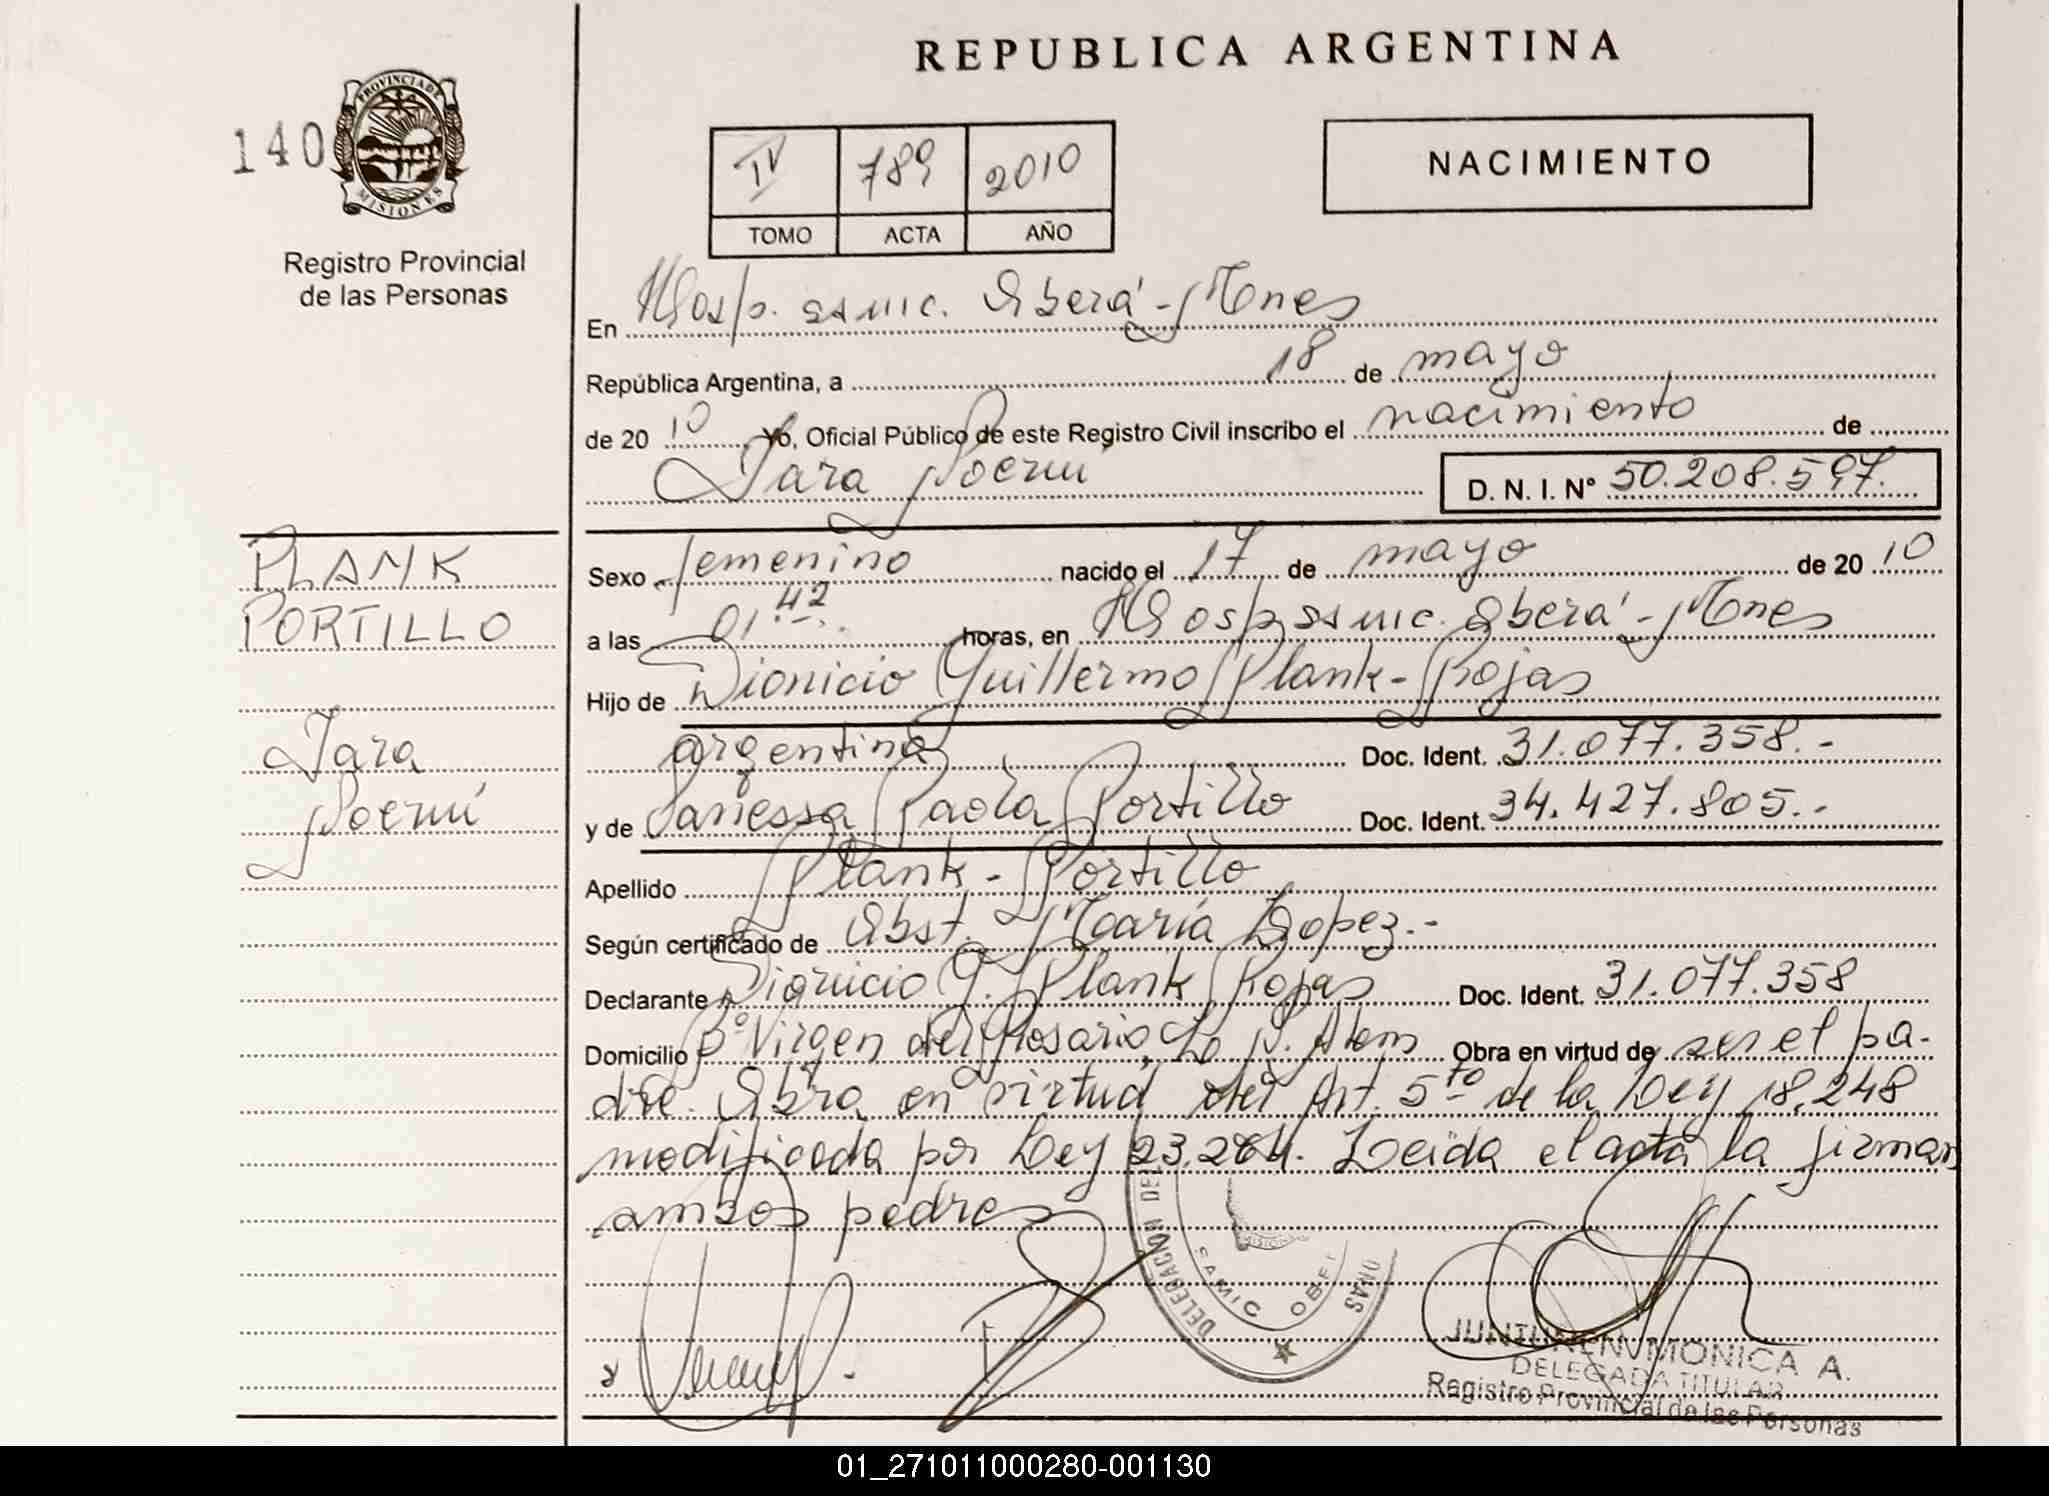 REPUBLICA ARGENTINA
140
PROVINCIA DE
MISIONES
Registro Provincial
de las Personas
IV 789 2010
TOMO ACTA AÑO
NACIMIENTO
En Hosp. ssmic. Oberá - Mnes
República Argentina, a 18 de mayo
de 20 10 Yo, Oficial Público de este Registro Civil inscribo el nacimiento de
Iara Noemí
D. N. I. N° 50.208.597.
PLANK
PORTILLO
Iara
Noemí
Sexo femenino nacido el 17 de mayo de 20 10
a las 01 42 horas, en Hosp ssmic. Oberá - Mnes
Hijo de Dionicio Guillermo Plank - Rojas
argentina Doc. Ident. 31.077.358.-
y de Vanessa Paola Portillo Doc. Ident. 34.427.805.-
Apellido Plank - Portillo
Según certificado de Obst. María Lopez.-
Declarante Dionicio G. Plank Rojas Doc. Ident. 31.077.358
Domicilio B° Virgen del Rosario, L. N. Alem Obra en virtud de ser el pa-
dre. Obra en virtud del Art. 5to de la Ley 18.248
modificada por Ley 23.264. Leída el acta la firman
ambos padres
DELEGACION
SAMIC OBE
JUNTUNEN MONICA A.
DELEGADA TITULAR
Registro Provincial de las Personas
01_271011000280-001130